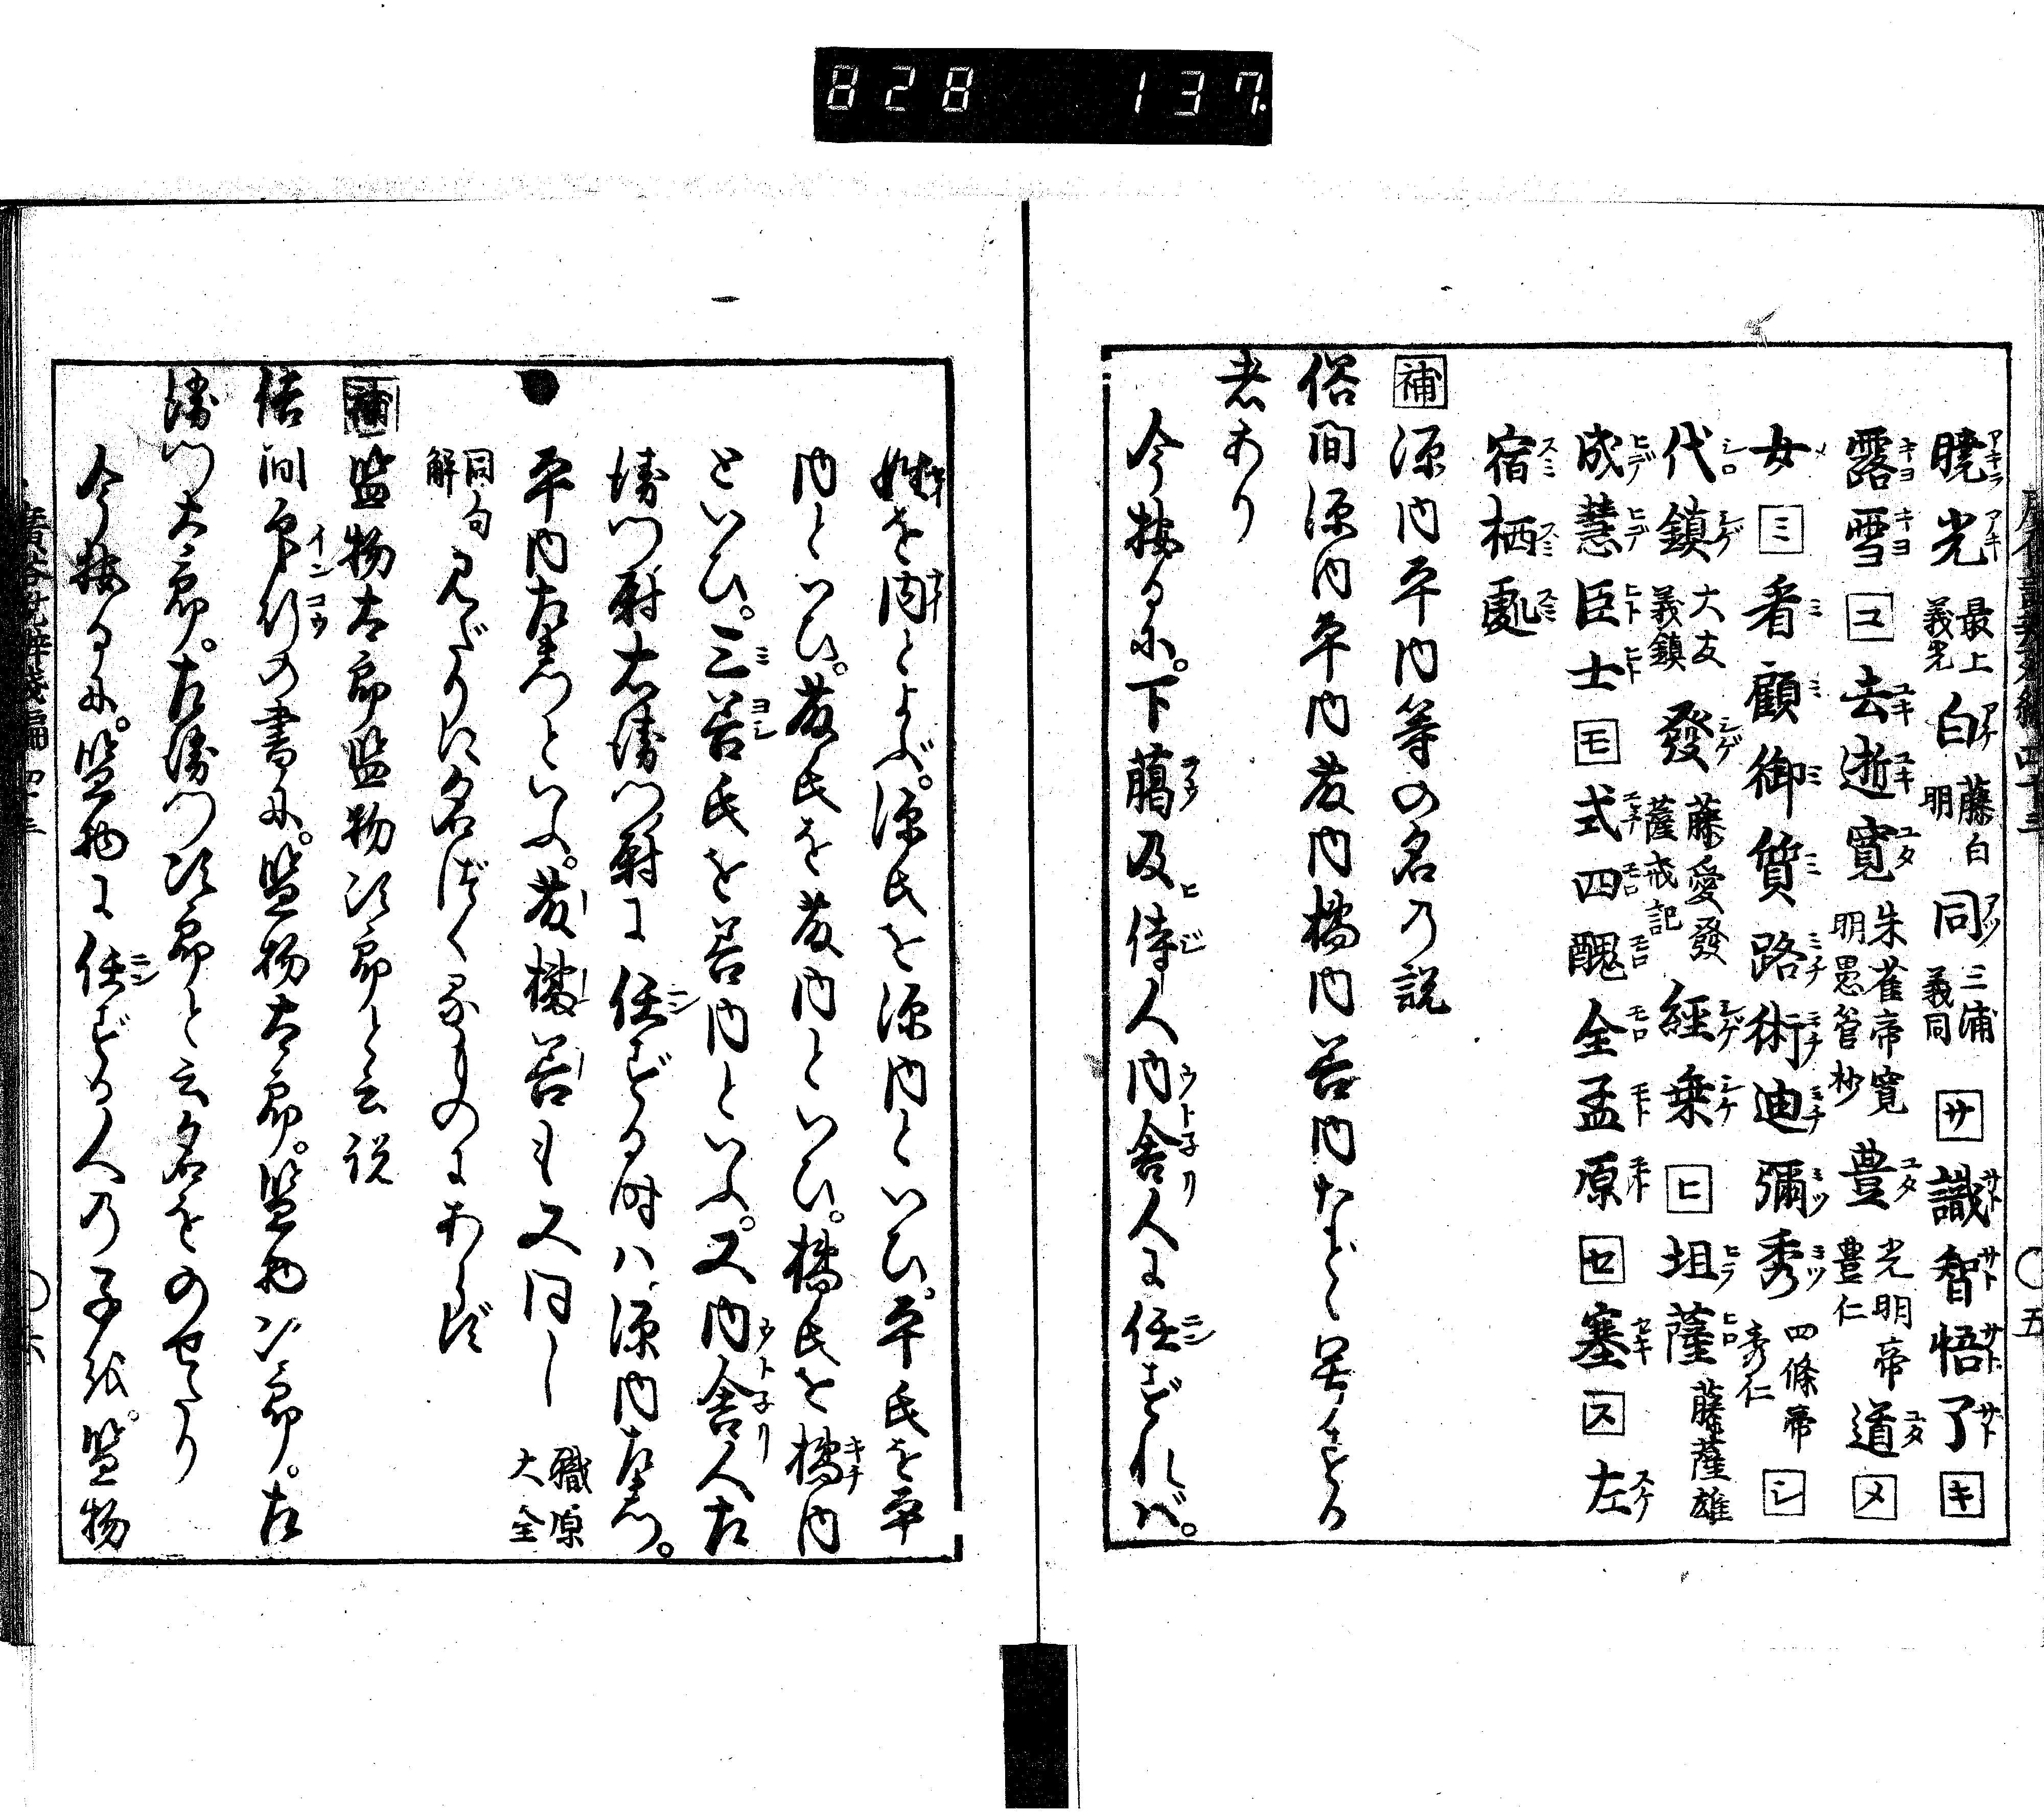 828 137
曉光 最上義光 白 藤白明 同 三浦義同 サ 識智悟了 キ
露雪 ユ 去逝寛 朱雀帝寛明愚管抄 豊 光明帝豊仁 道 メ
女 ミ 看顧御質路術迪彌秀 四條帝秀仁 シ
代鎮 大友義鎮 發 藤愛發薩戒記 經乗 ヒ 坦薩 藤薩雄
成慧臣士 モ 式四醜全孟原 セ 塞 ス 左
宿栖處
補 源内平内等の名の説
俗間源内平内藤内橘内善内など號する
者あり
今按るに。下﨟及侍人内舎人に任ずれバ。
姓を内とよぶ。源氏を源内といひ。平氏を平
内といひ。藤氏を藤内といひ。橘氏を橘内
といひ。三善氏を善内といふ。又内舎人左
衛門尉右衛門尉に任ずる時ハ。源内左衛門。
平内左衛門といふ。藤橘善も又同し 職原大全
同句解 みだりに名づくるものにあらず
補 監物太郎監物次郎と云説
俗間印行の書に。監物太郎。監物次郎。左
衛門太郎。左衛門次郎と云名をのせたり
今按るに。監物に任ずる人の子を。監物